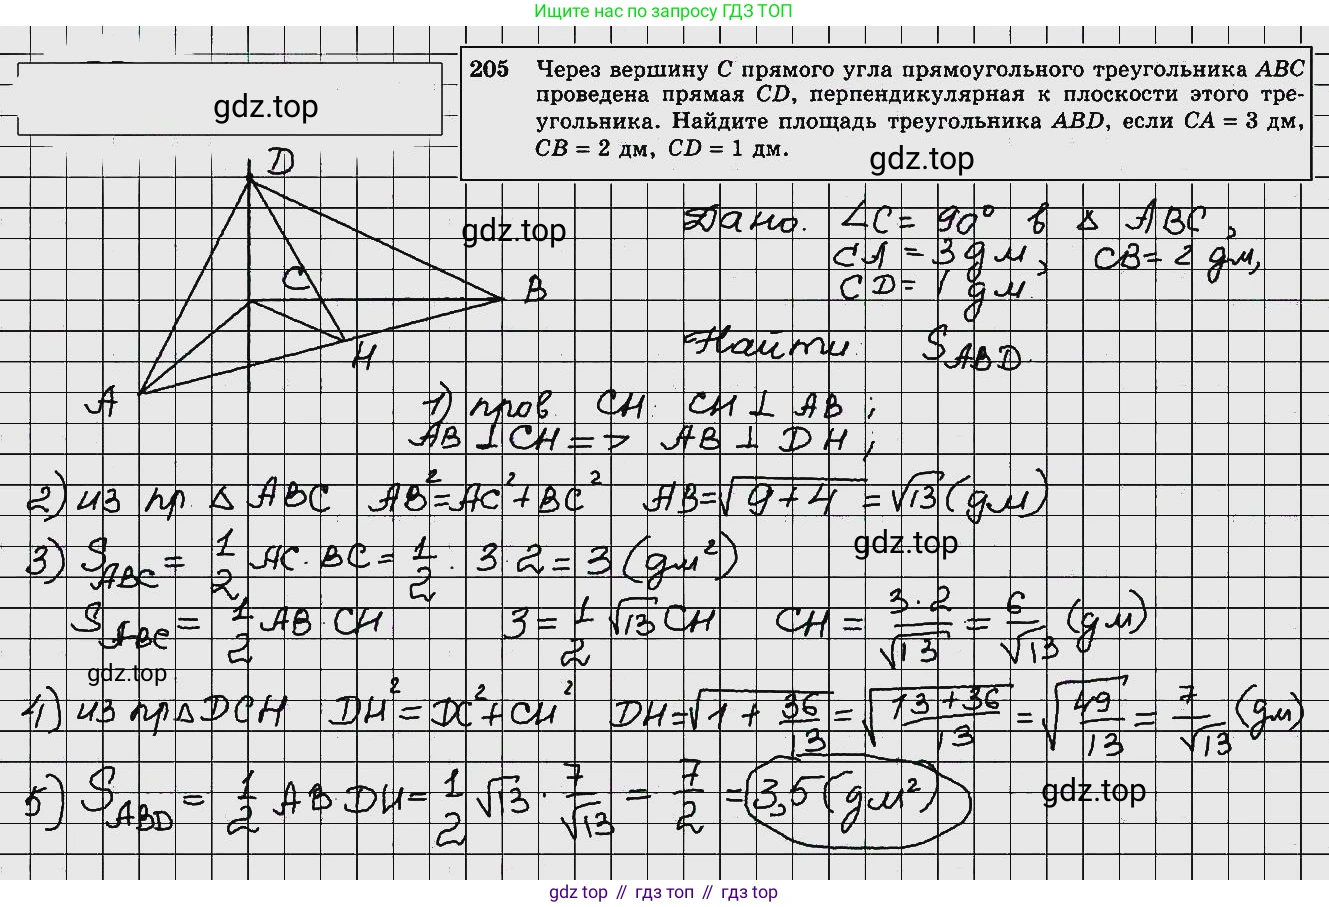 Ищите нас по запросу ГДЗ ТОП
gdz.top
205 Через вершину C прямого угла прямоугольного треугольника ABC
проведена прямая CD, перпендикулярная к плоскости этого тре-
угольника. Найдите площадь треугольника ABD, если CA = 3 дм,
CB = 2 дм, CD = 1 дм.
gdz.top
D
C
B
H
A
gdz.top
Дано. ∠C = 90° в △ ABC,
CA = 3 дм, CB = 2 дм,
CD = 1 дм.
Найти S_ABD.
1) пров CH CH ⊥ AB ;
AB ⊥ CH => AB ⊥ DH ;
2) из пр △ ABC AB² = AC² + BC² AB = √(9+4) = √13 (дм)
3) S_ABC = 1/2 AC · BC = 1/2 · 3 · 2 = 3 (дм²)
gdz.top
S_ABC = 1/2 AB · CH 3 = 1/2 √13 CH CH = 3·2/√13 = 6/√13 (дм)
gdz.top
4) из пр △ DCH DH² = DC² + CH² DH = √(1 + 36/13) = √((13+36)/13) = √(49/13) = 7/√13 (дм)
5) S_ABD = 1/2 AB · DH = 1/2 √13 · 7/√13 = 7/2 = 3,5 (дм²)
gdz.top
gdz top // гдз топ // gdz top